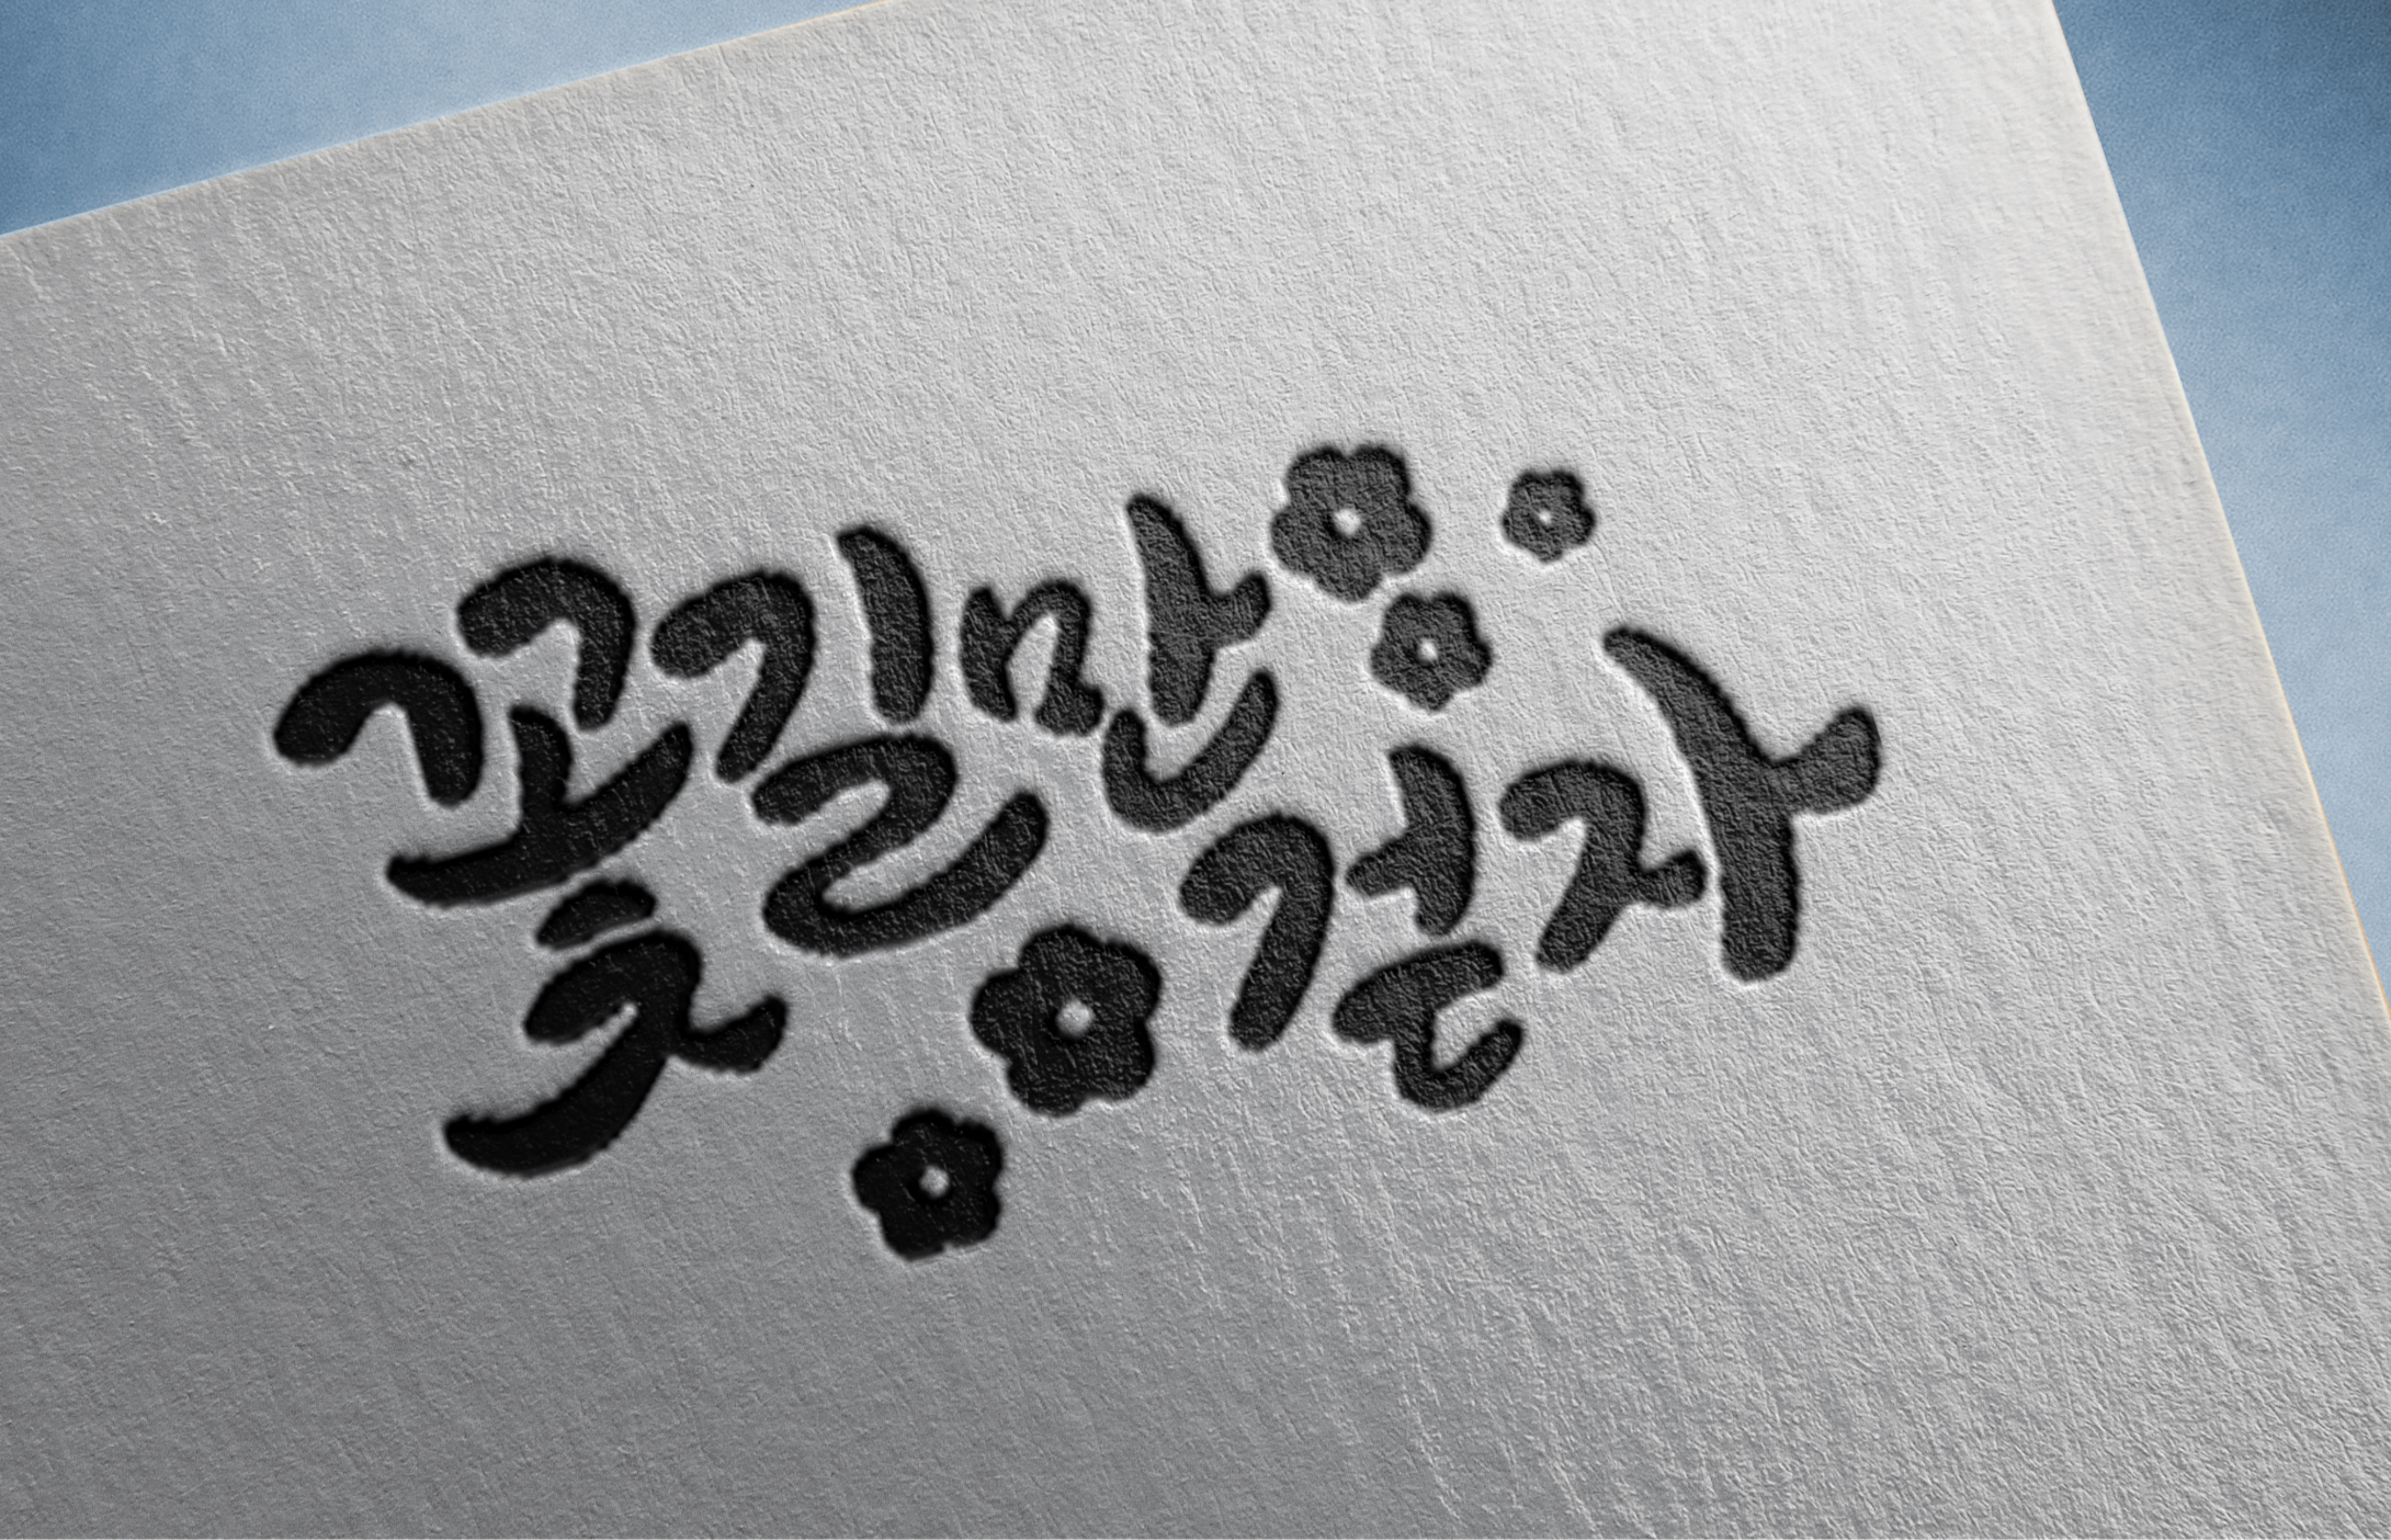 꽃길만
걷자